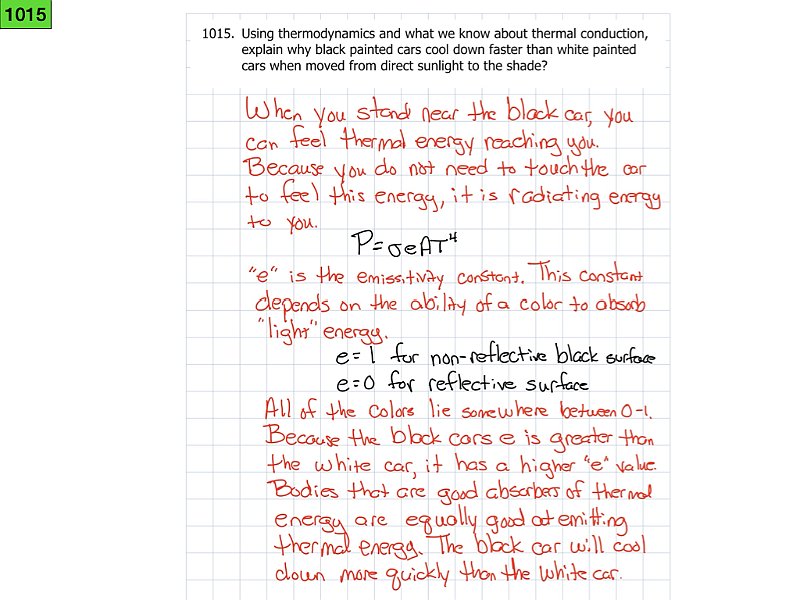 1015
1015. Using thermodynamics and what we know about thermal conduction,
explain why black painted cars cool down faster than white painted
cars when moved from direct sunlight to the shade?
When you stand near the black car, you
can feel thermal energy reaching you.
Because you do not need to touch the car
to feel this energy, it is radiating energy
to you.
P=σeAT⁴
"e" is the emissitivity constant. This constant
depends on the ability of a color to absorb
"light" energy.
e=1 for non-reflective black surface
e=0 for reflective surface
All of the colors lie somewhere between 0-1.
Because the black cars e is greater than
the white car, it has a higher "e" value.
Bodies that are good absorbers of thermal
energy are equally good at emitting
thermal energy. The black car will cool
down more quickly than the white car.